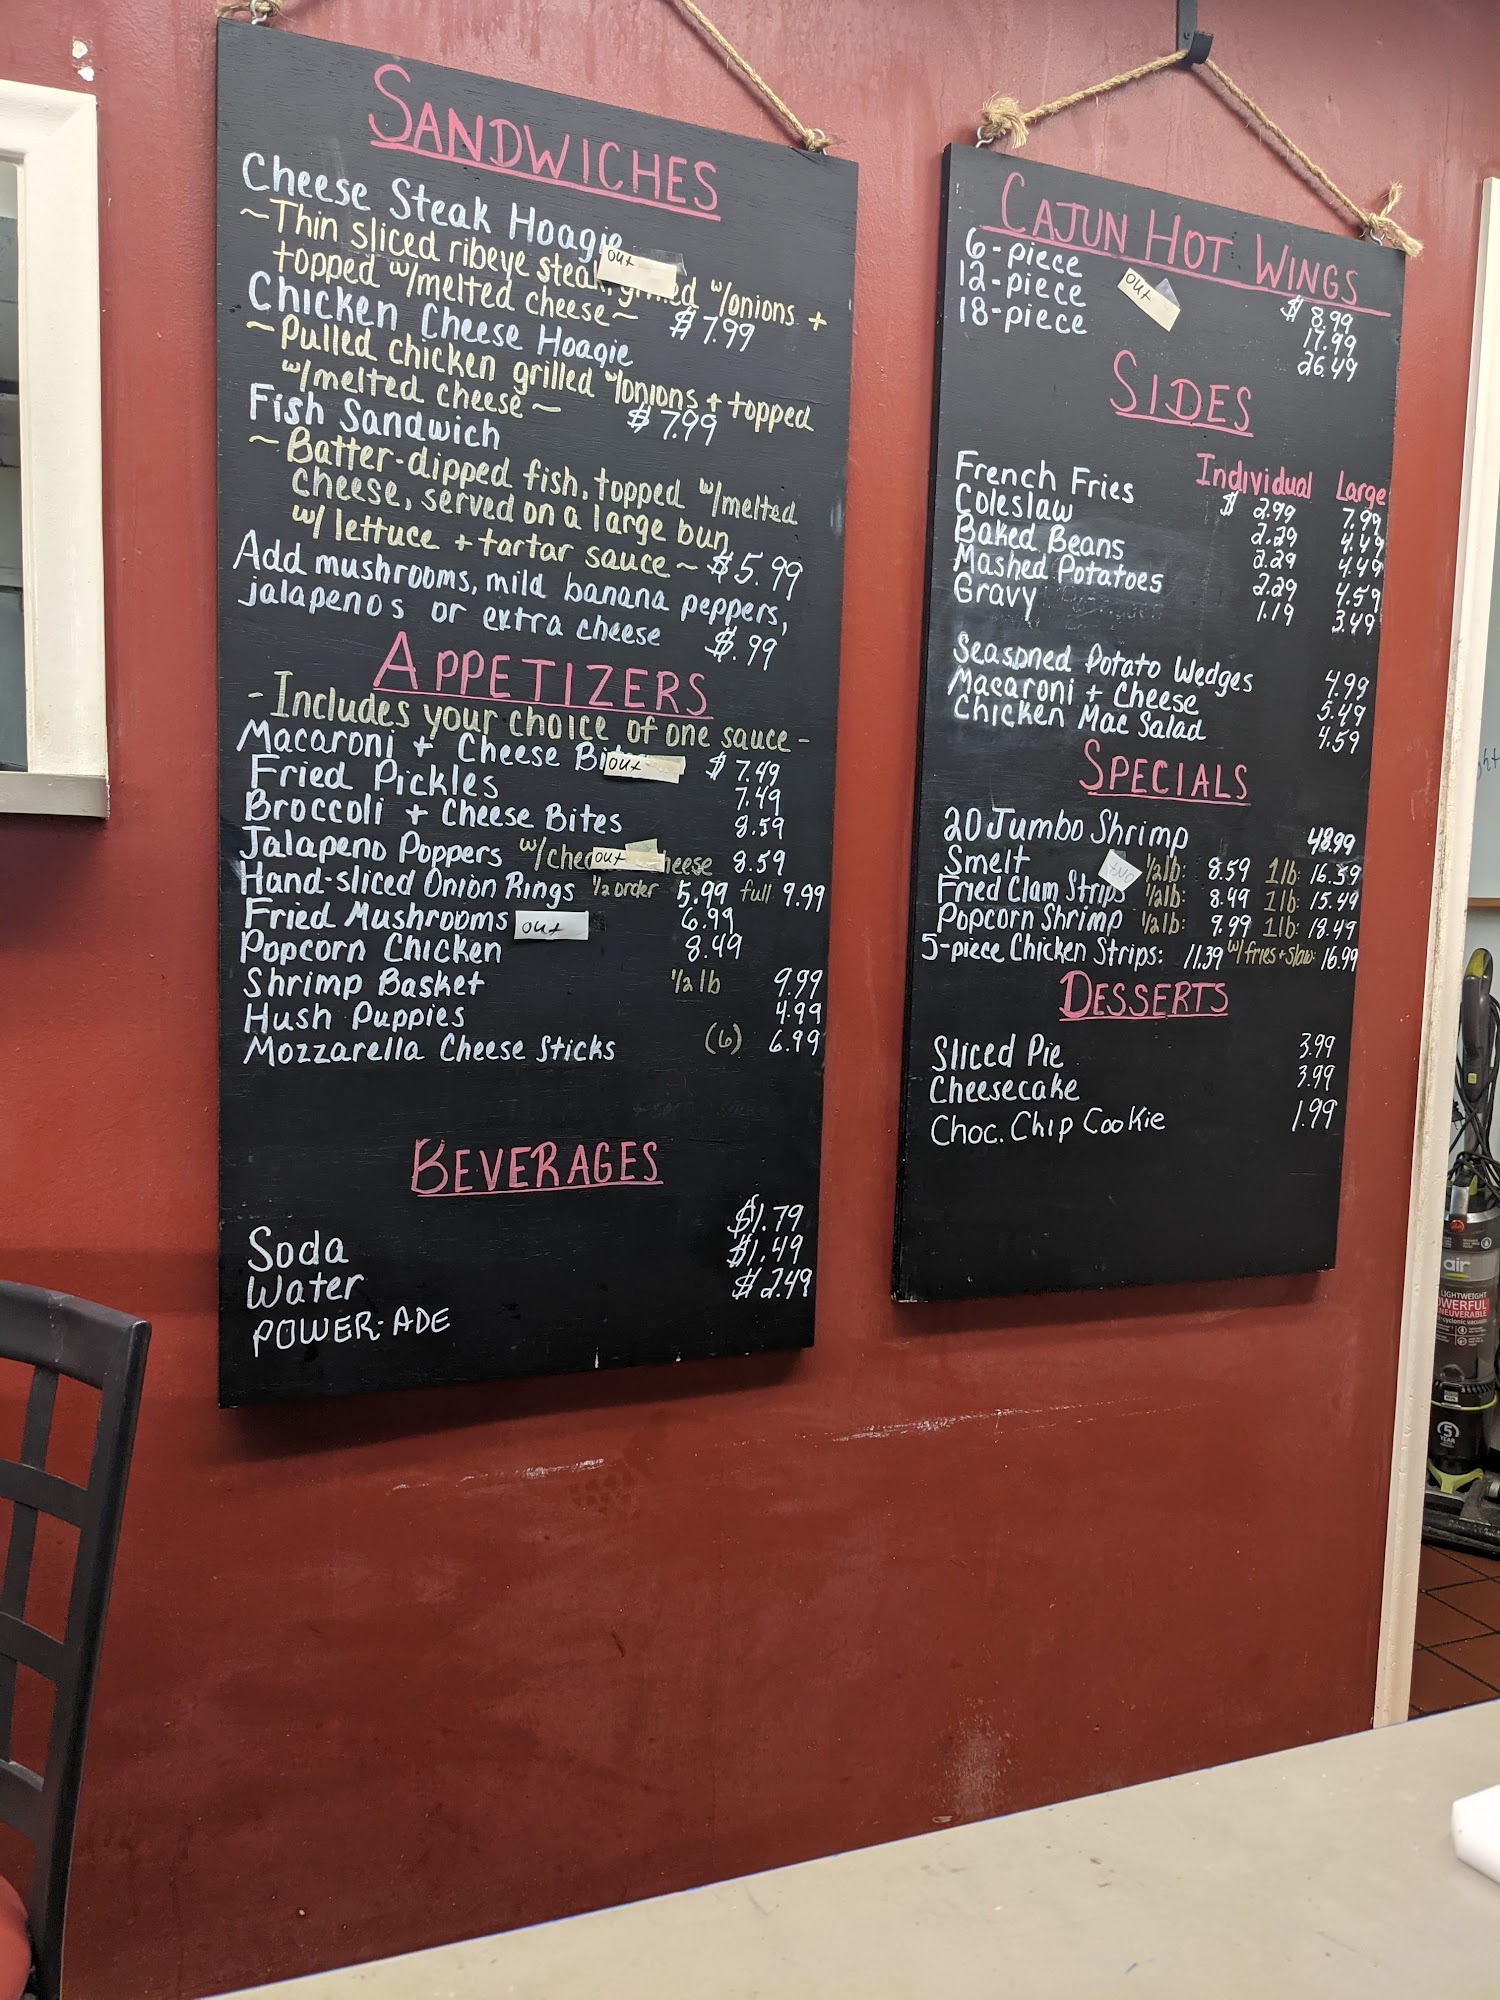 SANDWICHES
Cheese Steak Hoagie
out
~Thin sliced ribeye steak, grilled w/onions +
topped w/melted cheese~ $7.99
Chicken Cheese Hoagie
~Pulled chicken grilled w/onions + topped
w/melted cheese~ $7.99
Fish Sandwich
~Batter-dipped fish, topped w/melted
cheese, served on a large bun
w/ lettuce + tartar sauce~ $5.99
Add mushrooms, mild banana peppers,
jalapenos or extra cheese $.99
APPETIZERS
-Includes your choice of one sauce-
Macaroni + Cheese Bi out $7.49
Fried Pickles 7.49
Broccoli + Cheese Bites 8.59
Jalapeno Poppers w/ched out heese 8.59
Hand-sliced Onion Rings 1/2 order 5.99 full 9.99
Fried Mushrooms out 6.99
Popcorn Chicken 8.49
Shrimp Basket 1/2 lb 9.99
Hush Puppies 4.99
Mozzarella Cheese Sticks (6) 6.99
BEVERAGES
Soda $1.79
Water $1.49
POWER-ADE $2.49
CAJUN HOT WINGS
6-piece $8.99
12-piece out 17.99
18-piece 26.49
SIDES
Individual Large
French Fries $2.99 7.99
Coleslaw 2.29 4.49
Baked Beans 2.29 4.49
Mashed Potatoes 2.29 4.59
Gravy 1.19 3.49
Seasoned Potato Wedges 4.99
Macaroni + Cheese 5.49
Chicken Mac Salad 4.59
SPECIALS
20 Jumbo Shrimp 48.99
Smelt out 1/2lb: 8.59 1lb: 16.59
Fried Clam Strips 1/2lb: 8.49 1lb: 15.49
Popcorn Shrimp 1/2lb: 9.99 1lb: 18.49
5-piece Chicken Strips: 11.39 w/fries+slaw: 16.99
DESSERTS
Sliced Pie 3.99
Cheesecake 3.99
Choc. Chip Cookie 1.99
air
LIGHTWEIGHT
POWERFUL
5
YEAR